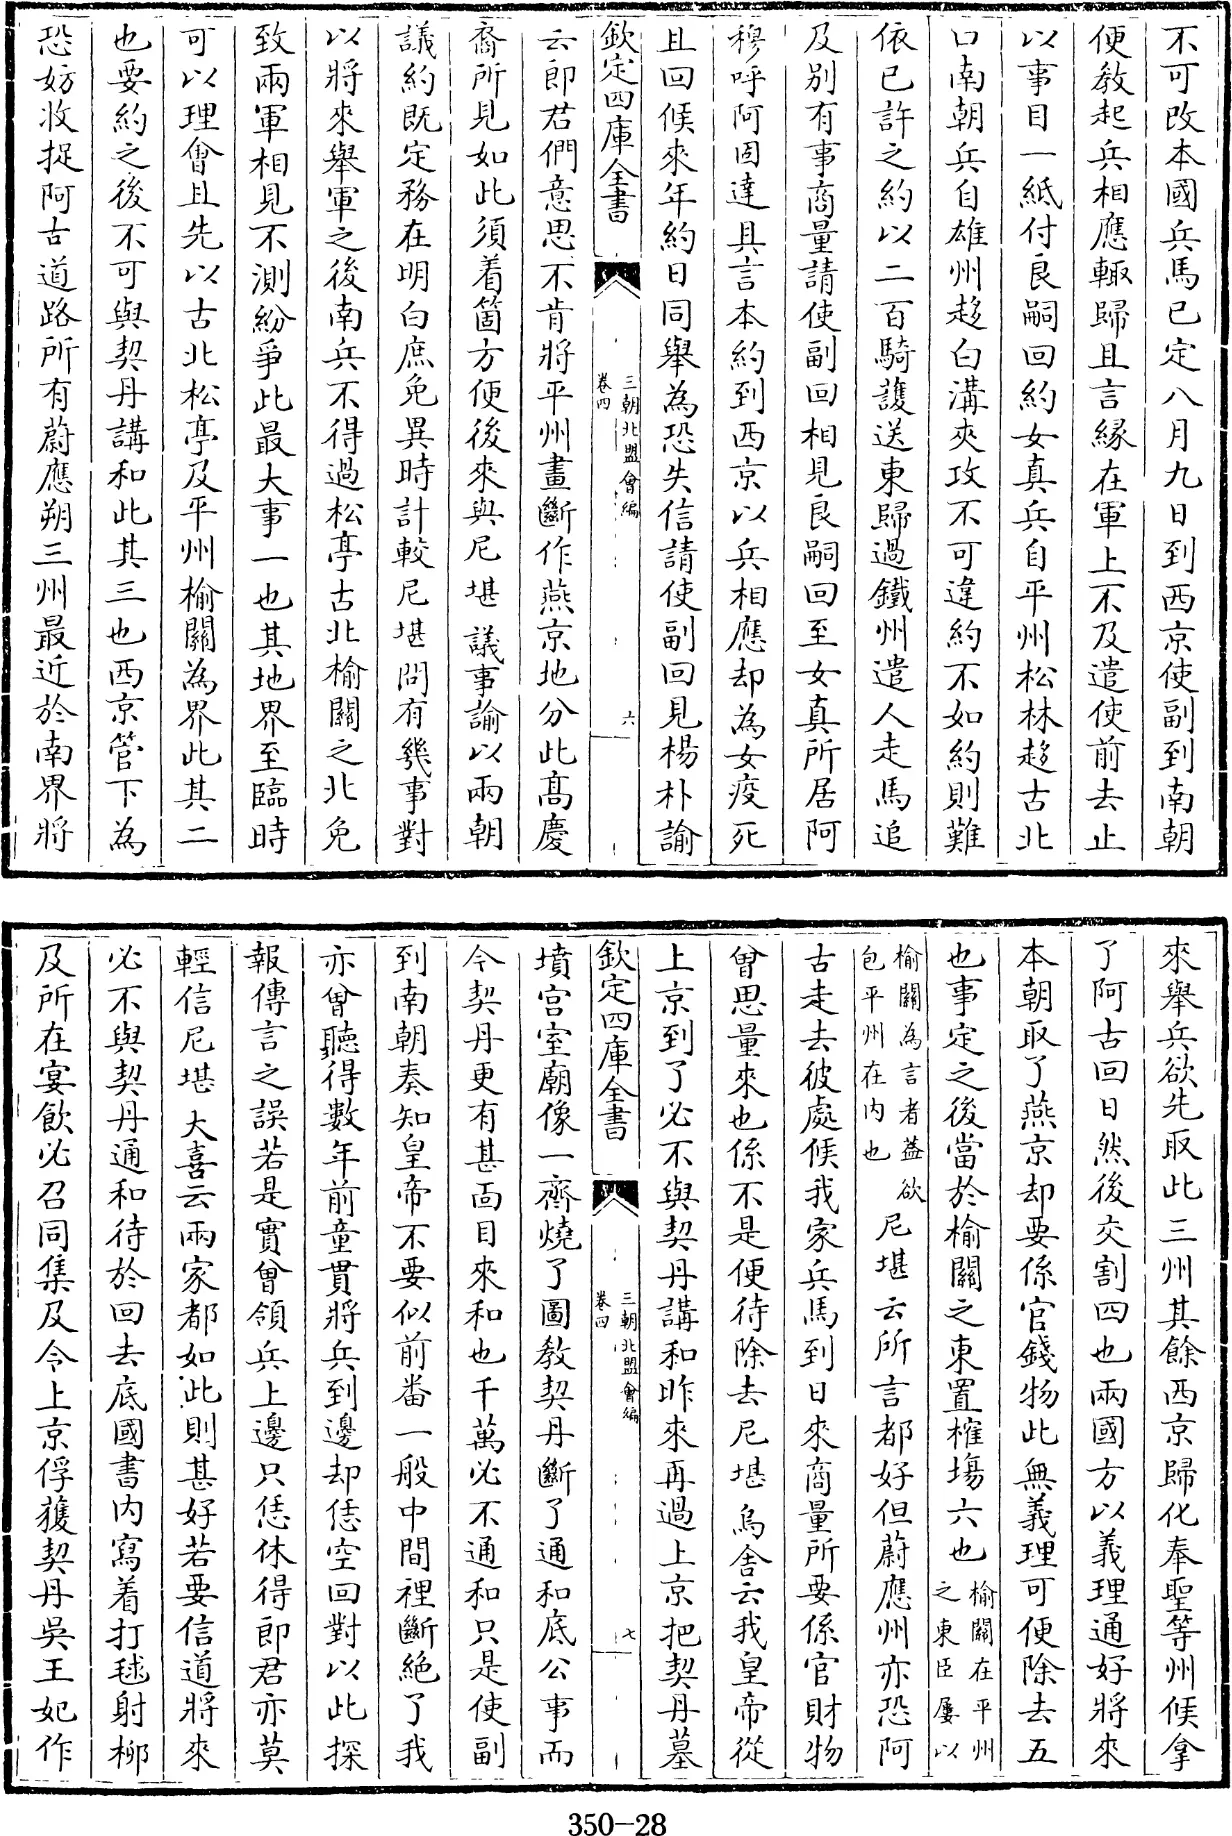 不可改本國兵馬已定八月九日到西京使副到南朝
便教起兵相應輙歸且言緣在軍上不及遣使前去止
以事目一紙付良嗣回約女真兵自平州松林趍古北
口南朝兵自雄州趍白溝夾攻不可違約不如約則難
依已許之約以二百騎護送東歸過鐵州遣人走馬追
及别有事商量請使副回相見良嗣回至女真所居阿
穆呼阿固達具言本約到西京以兵相應却為女疫死
且回候來年約日同舉為恐失信請使副回見楊朴諭
欽定四庫全書
三朝北盟會編
卷四
六
云郎君們意思不肯將平州畫斷作燕京地分此髙慶
裔所見如此須着箇方便後來與尼堪議事諭以兩朝
議約既定務在明白庶免異時計較尼堪問有幾事對
以將來舉軍之後南兵不得過松亭古北榆關之北免
致兩軍相見不測紛爭此最大事一也其地界至臨時
可以理會且先以古北松亭及平州榆關為界此其二
也要約之後不可與契丹講和此其三也西京管下為
恐妨收捉阿古道路所有蔚應朔三州最近於南界將
來舉兵欲先取此三州其餘西京歸化奉聖等州候拿
了阿古回日然後交割四也兩國方以義理通好將來
本朝取了燕京却要係官錢物此無義理可便除去五
也事定之後當於榆關之東置榷塲六也榆關在平州之東臣屢以
榆關為言者葢欲包平州在内也尼堪云所言都好但蔚應州亦恐阿
古走去彼處候我家兵馬到日來商量所要係官財物
曾思量來也係不是便待除去尼堪烏舍云我皇帝從
上京到了必不與契丹講和昨來再過上京把契丹墓
欽定四庫全書
三朝北盟會編
卷四
七
墳宫室廟像一齊燒了圖教契丹斷了通和底公事而
今契丹更有甚面目來和也千萬必不通和只是使副
到南朝奏知皇帝不要似前番一般中間裡斷絶了我
亦曾聽得數年前童貫將兵到邊却恁空回對以此探
報傳言之誤若是實曾領兵上邊只恁休得郎君亦莫
輕信尼堪大喜云兩家都如此則甚好若要信道將來
必不與契丹通和待於回去底國書内寫着打毬射柳
及所在宴飲必召同集及令上京俘獲契丹吳王妃作
350-28